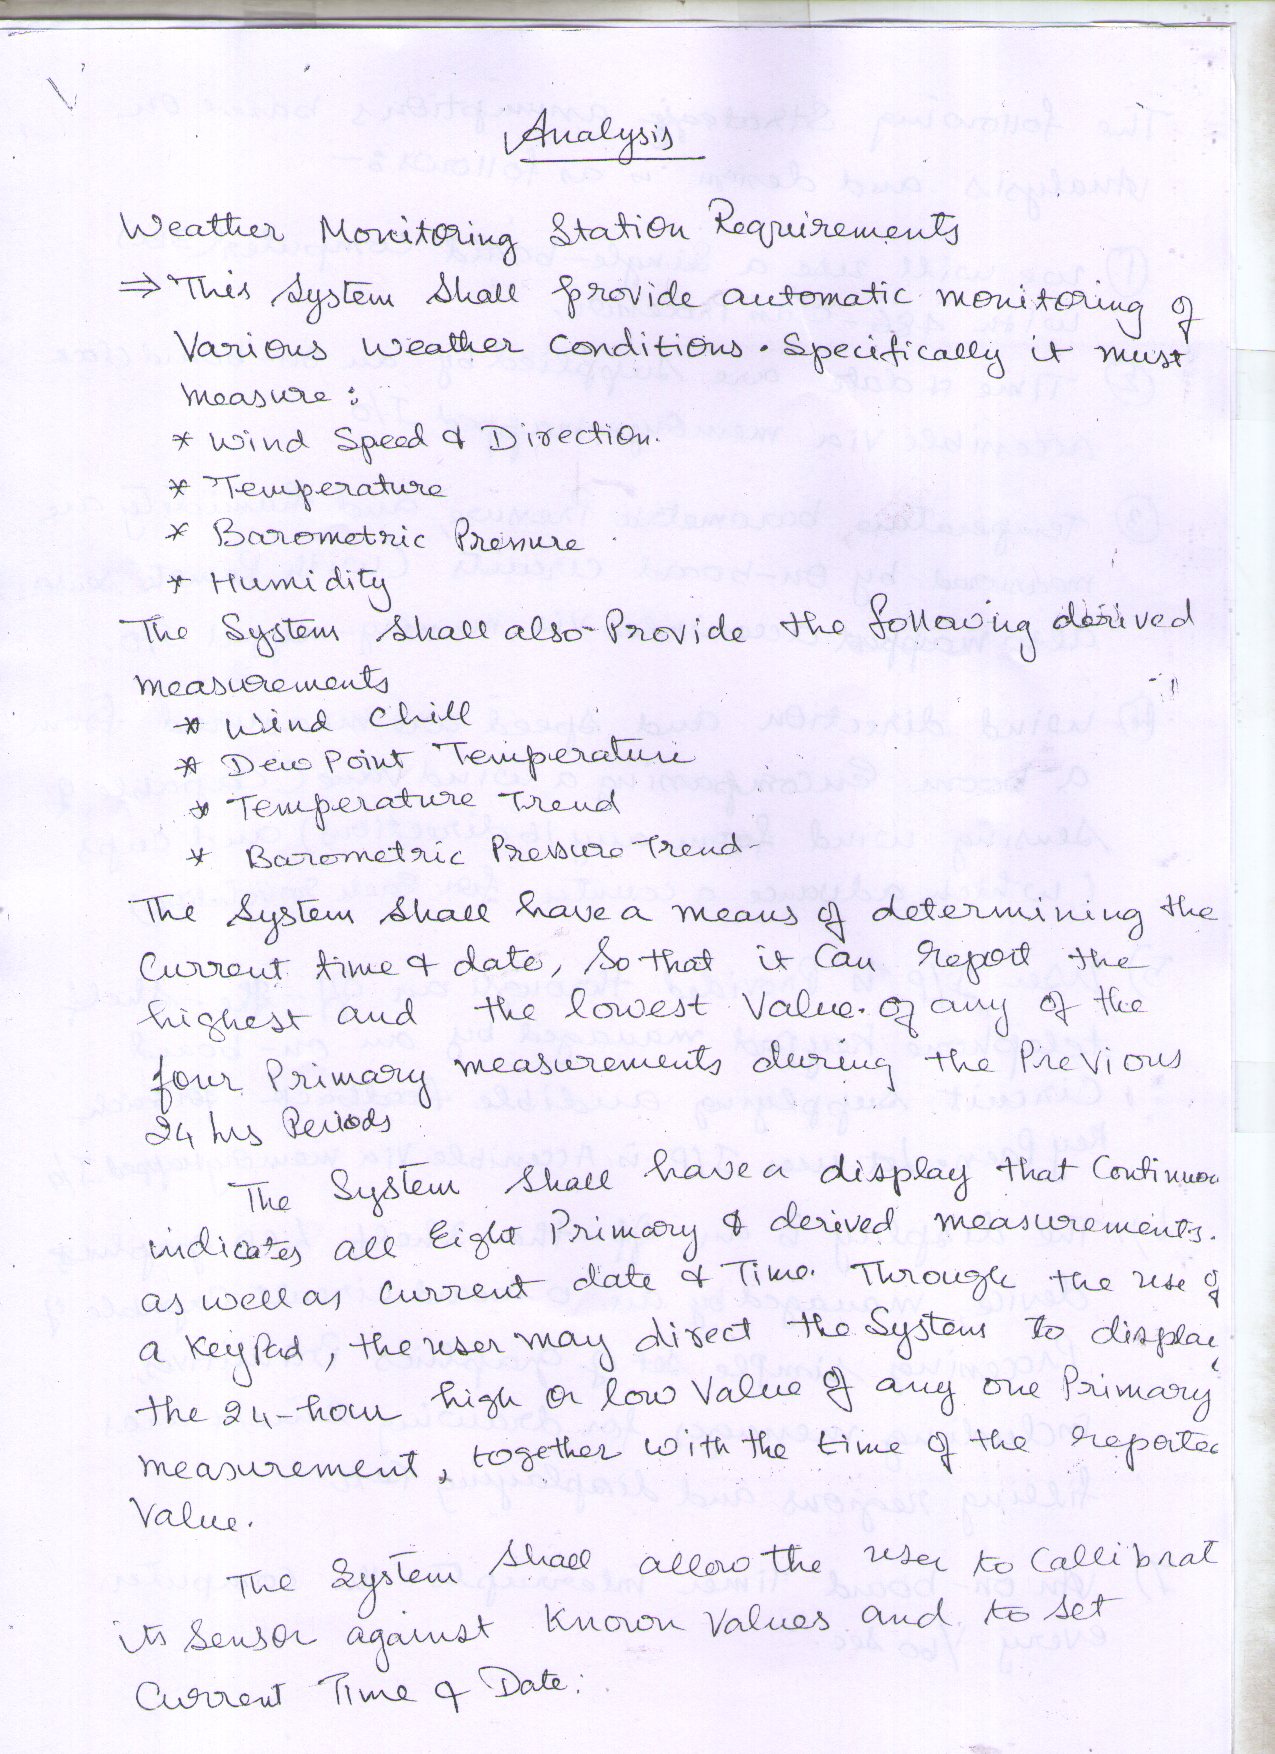 Analysis
Weather Monitoring Station Requirements
⇒ This System Shall provide automatic monitoring of
Various weather Conditions. Specifically it must
measure :
* Wind Speed & Direction.
* Temperature
* Barometric Pressure
* Humidity
The System Shall also Provide the following derived
measurements
* Wind Chill
* Dew Point Temperature
* Temperature Trend
* Barometric Pressure Trend
The System Shall have a means of determining the
Current time & date, So that it Can report the
highest and the lowest Value of any of the
four Primary measurements during the Previous
24 hrs Periods
The System Shall have a display that Continuou
indicates all Eight Primary & derived measurements.
as well as Current date & Time. Through the use of
a KeyPad, the user may direct the System To display
the 24-hour high or low Value of any one Primary
measurement, together with the time of the reported
Value.
The System Shall allow the user to Callibrat
its Sensor against Known Values and to Set
Current Time & Date.